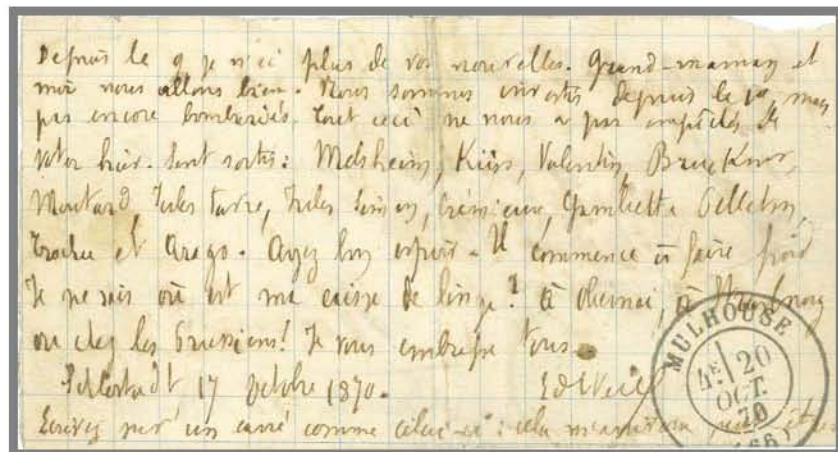 Depuis le 9 je n'ai plus de vos nouvelles. Grand-maman et
moi nous allons bien. Nous sommes investis depuis le mais
pas encore bombardés. Tout ceci ne nous a pas empêchés de
voter hier. Sont sortis : Melsheim, Küss, Valentin, Bruckner,
Moutard, Jules Favre, Jules Simon, Crémieux, Gambetta Pelletan,
Trochu et Arago. Ayez bon espoir. Il commence à faire froid
Je ne sais où est ma caisse de linge? à Obernai, à Strasbourg
ou chez les Prussiens! Je vous embrasse tous.
Schlestadt 17 octobre 1870. Ed Weill
Ecrivez sur un carré comme celui-ci : cela m'arrivera peut-être
MULHOUSE
4E
20
OCT.
70
(66)